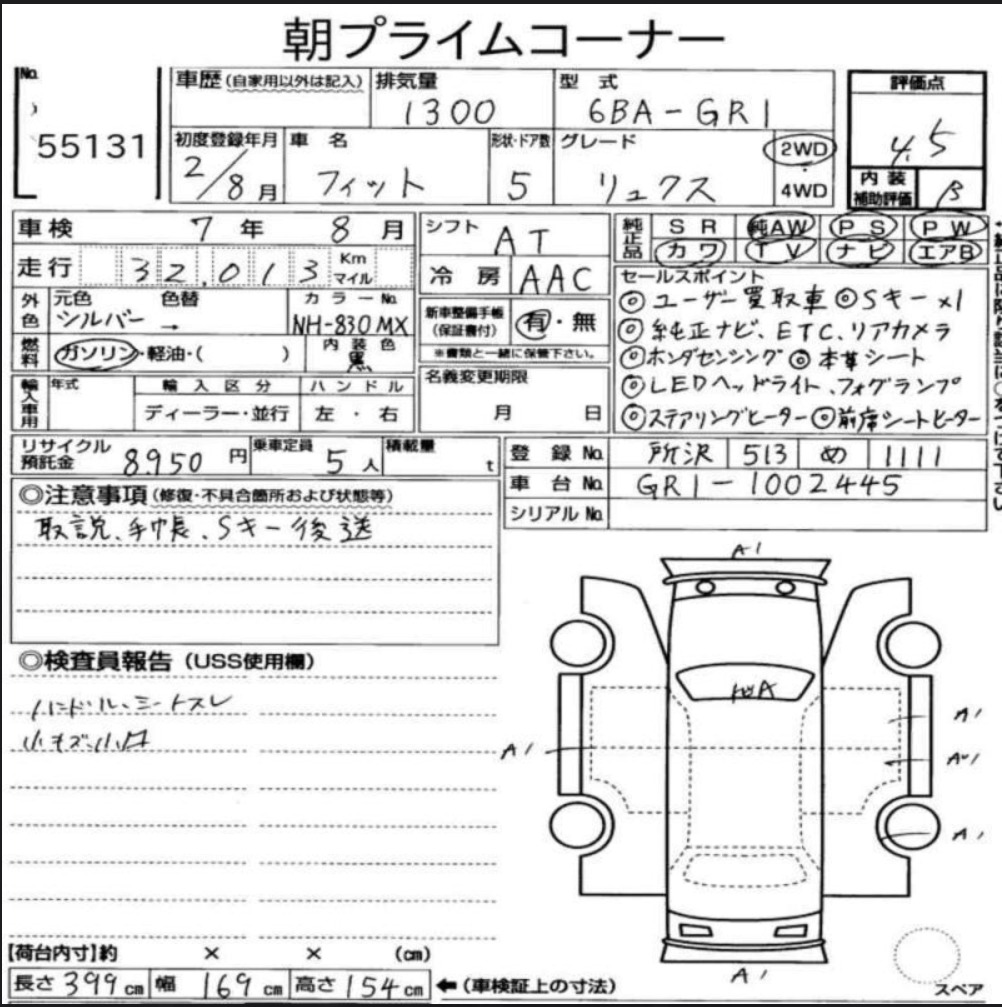 朝プライムコーナー
No.
55131
車歴(自家用以外は記入) 排気量 1300 型式 6BA-GR1
評価点 4.5
初度登録年月 2/8月 車名 フィット 形状・ドア数 5 グレード リュクス 2WD 4WD
内装補助評価 B
車検 7年 8月
シフト AT
純正品 SR 純AW PS PW
カワ TV ナビ エアB
走行 32,013 Km マイル
冷房 AAC
セールスポイント
◎ユーザー買取車 ◎Sキー×1
◎純正ナビ、ETC、リアカメラ
◎ホンダセンシング ◎本革シート
◎LEDヘッドライト、フォグランプ
◎ステアリングヒーター ◎前席シートヒーター
外色 元色 シルバー → 色替 カラーNo. NH-830MX
新車整備手帳(保証書付) 有・無
※書類と一緒に保管下さい。
燃料 ガソリン・軽油・( ) 内装色 黒
名義変更期限 月 日
輸入車用 年式 輸入区分 ハンドル
ディーラー・並行 左・右
リサイクル預託金 8950円 乗車定員 5人 積載量 t
登録No. 所沢 513 め 1111
車台No. GR1-1002445
シリアルNo.
◎注意事項(修復・不具合箇所および状態等)
取説、手帳、Sキー後送
◎検査員報告(USS使用欄)
ハンドル、シートスレ
小キズ小凹
A1
A1
A1
A1
A1
スペア
【荷台内寸】約 × × (cm)
長さ 399cm 幅 169cm 高さ 154cm ←(車検証上の寸法)